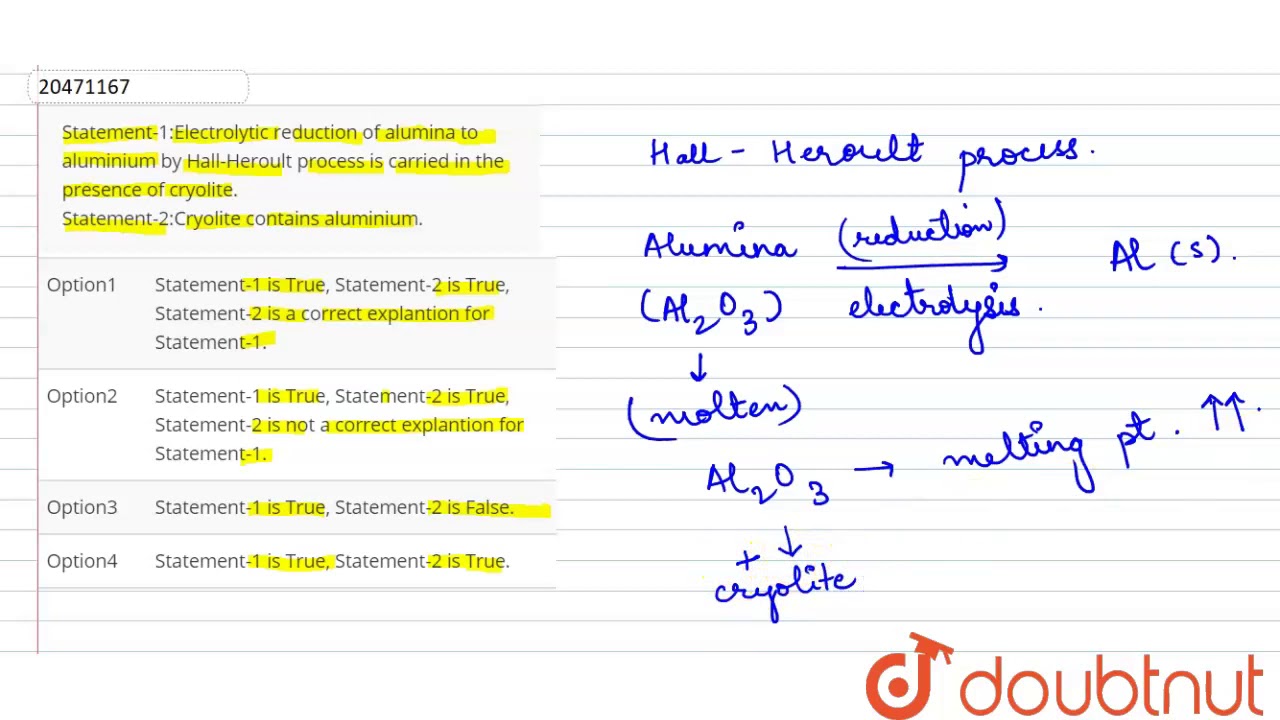 20471167
Statement-1:Electrolytic reduction of alumina to
aluminium by Hall-Heroult process is carried in the
presence of cryolite.
Statement-2:Cryolite contains aluminium.
Option1 Statement-1 is True, Statement-2 is True,
Statement-2 is a correct explantion for
Statement-1.
Option2 Statement-1 is True, Statement-2 is True,
Statement-2 is not a correct explantion for
Statement-1.
Option3 Statement-1 is True, Statement-2 is False.
Option4 Statement-1 is True, Statement-2 is True.
Hall - Heroult process.
Alumina (reduction) Al (s).
(Al2O3) electrolysis.
↓
(molten)
Al2O3 → melting pt. ↑↑.
↓
+
cryolite
doubtnut